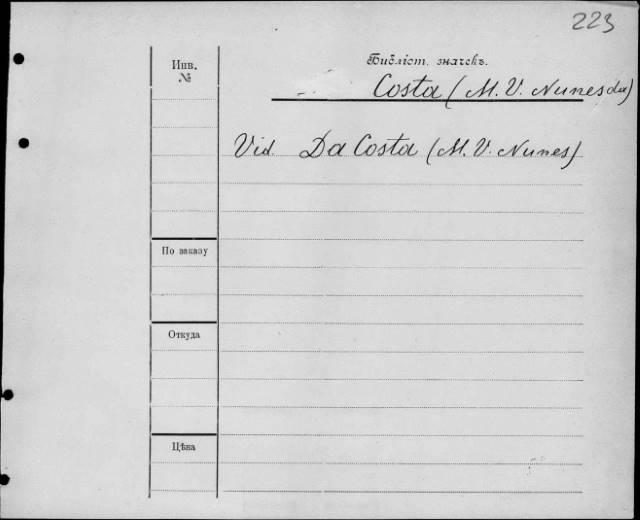 223
Инв.
№
Библіот. значекъ.
Costa (M. V. Nunes da)
Vid. Da Costa (M. V. Nunes)
По заказу
Откуда
Цѣна